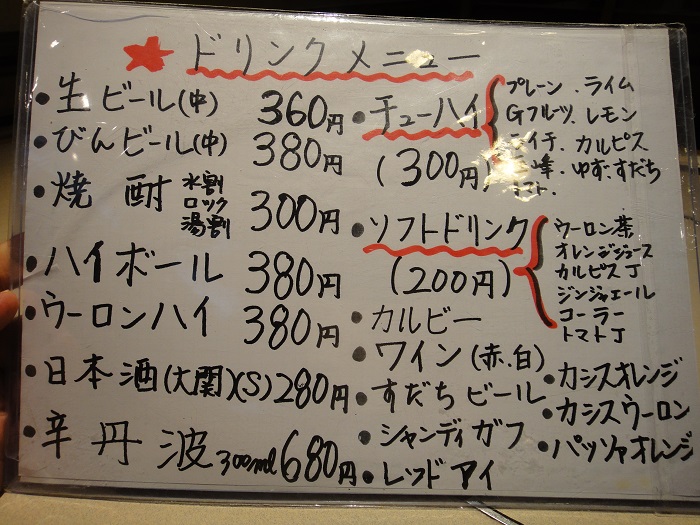 ドリンクメニュー
・生ビール(中) 360円
・びんビール(中) 380円
・焼酎 水割 ロック 湯割 300円
・ハイボール 380円
・ウーロンハイ 380円
・日本酒(大関)(S) 280円
・辛丹波 300ml 680円
・チューハイ
(300円)
プレーン.ライム
Gフルーツ.レモン
ライチ.カルピス
峰.ゆず.すだち
トマト.
・ソフトドリンク
(200円)
ウーロン茶
オレンジジュース
カルピスJ
ジンジャエール
コーラー
トマトJ
・カルビー
・ワイン(赤.白)
・すだちビール
・シャンディガフ
・レッドアイ
・カシスオレンジ
・カシスウーロン
・パッソァオレンジ